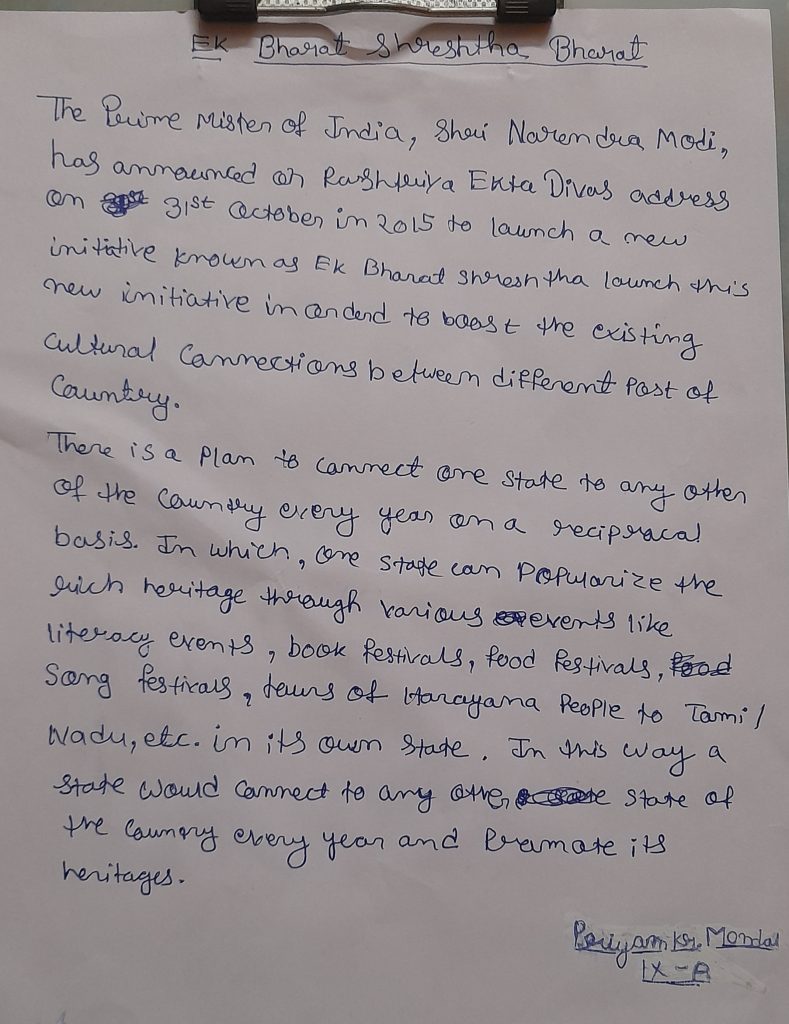 Ek Bharat Shreshtha Bharat
The Prime Mister of India, Shri Narendra Modi,
has announced on Rashtriya Ekta Divas address
on 31st October in 2015 to launch a new
initiative known as Ek Bharat Shreshtha launch this
new initiative in onderd to boost the existing
cultural Connections between different Post of
Country.
There is a Plan to connect one state to any other
of the Country every year on a reciprocal
basis. In which, one state can Popularize the
rich heritage through various events like
literacy events, book festivals, food festivals,
Song festivals, tours of Harayana People to Tamil
Nadu, etc. in its own state. In this way a
state would connect to any other state of
the Counry every year and Promote its
heritages.
Priyam Kr. Mondal
IX-A